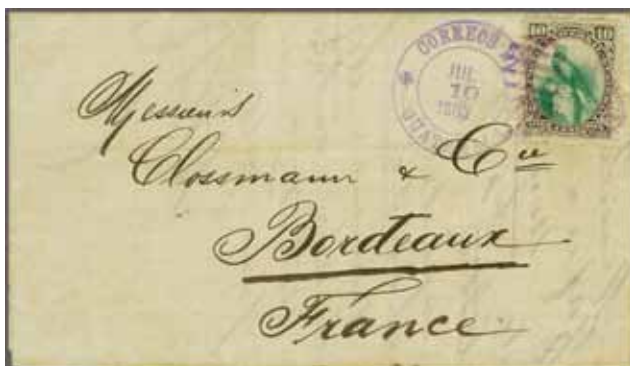 10 10
CORREOS
JUL
10
Messieurs
Clossmann & Cie
Bordeaux
France